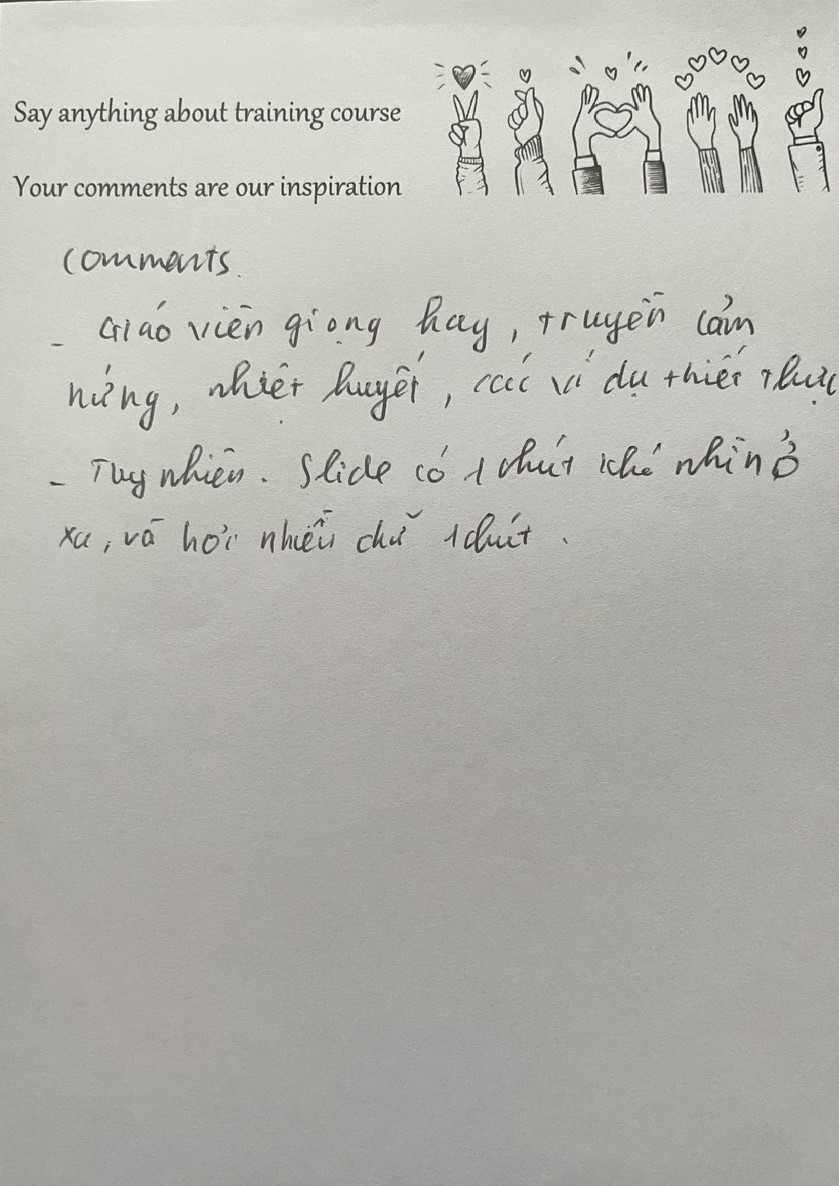 Say anything about training course
Your comments are our inspiration
Comments.
- Giáo viên giọng hay, truyền cảm
hứng, nhiệt huyết, các ví dụ thiết thực
- Tuy nhiên. Slide có 1 chút khó nhìn ở
xa, và hơi nhiều chữ 1 chút.